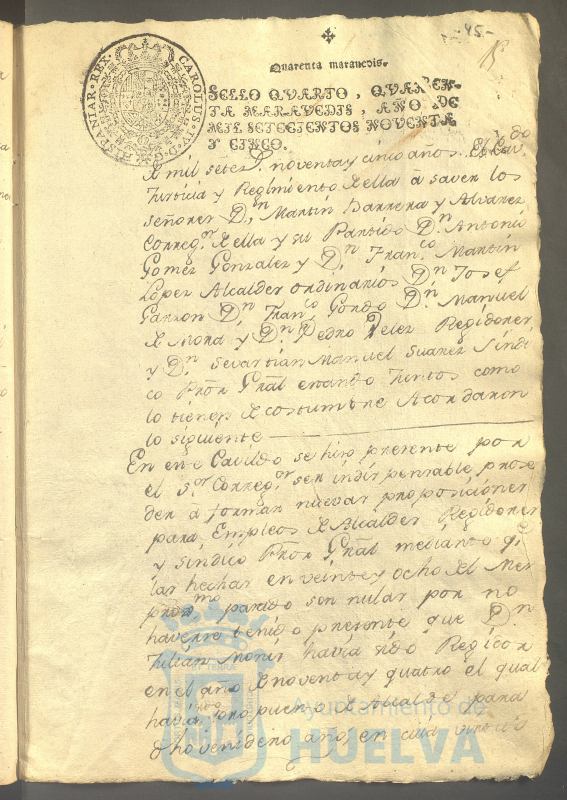 -45-
Quarenta maravedis.
CAROLUS IV D G HISPANIAR REX
SELLO QVARTO, QVAREN-
TA MARAVEDIS, AÑO DE
MIL SETECIENTOS NOVENTA
Y CINCO.
De mil setez.s noventa y cinco años. El Cav.do
Justicia y Regimiento de ella â saver los
señores D.n Martin Barrera y Alvarez
Correg.or de ella y su Partido D.n Antonio
Gomez Gonzalez y D.n Fran.co Martin
Lopez Alcaldes ordinarios D.n Josef
Garzon D.n Fran.co Gordo D.n Manuel
de Mora y D.n Pedro Velez Regidores
y D.n Sevastian Manuel Suarez Sindi
co Pror Gral estando Juntos como
lo tienen de costumbre Acordaron
lo siguiente
En este Cavildo se hizo presente por
el S.or Correg.or ser indispensable proce
der â formar nuevas proposiciones
para Empleos de Alcaldes Regidores
y sindico Pror Gral mediante q.e
las hechas en veinte y ocho del Mes
prox.mo pasado son nulas por no
haverse tenido presente que D.n
Julian Monis havia sido Regidor
en el año de noventa y quatro el qual
havia sido puesto de Alcalde para
dho venidero año, en cuia virtud
Ayuntamiento de
HUELVA